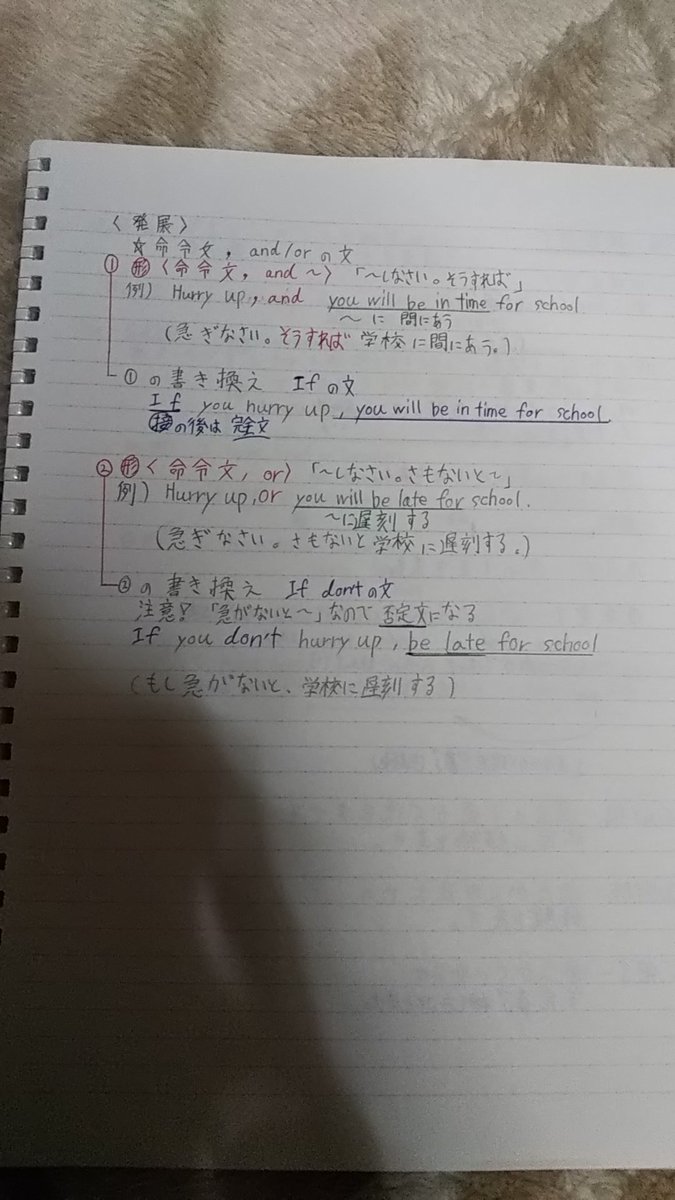 〈発展〉
☆命令文，and/orの文
① 形〈命令文，and ～〉「～しなさい。そうすれば」
例） Hurry up, and you will be in time for school
～に 間にあう
(急ぎなさい。そうすれば 学校に間にあう。)
①の書き換え Ifの文
If you hurry up, you will be in time for school.
接の後は 完全文
② 形〈命令文，or〉「～しなさい。さもないと～」
例） Hurry up, or you will be late for school.
～に遅刻する
(急ぎなさい。さもないと学校に遅刻する。)
②の書き換え If don'tの文
注意？「急がないと～」なので 否定文になる
If you don't hurry up, be late for school
(もし急がないと、学校に遅刻する)